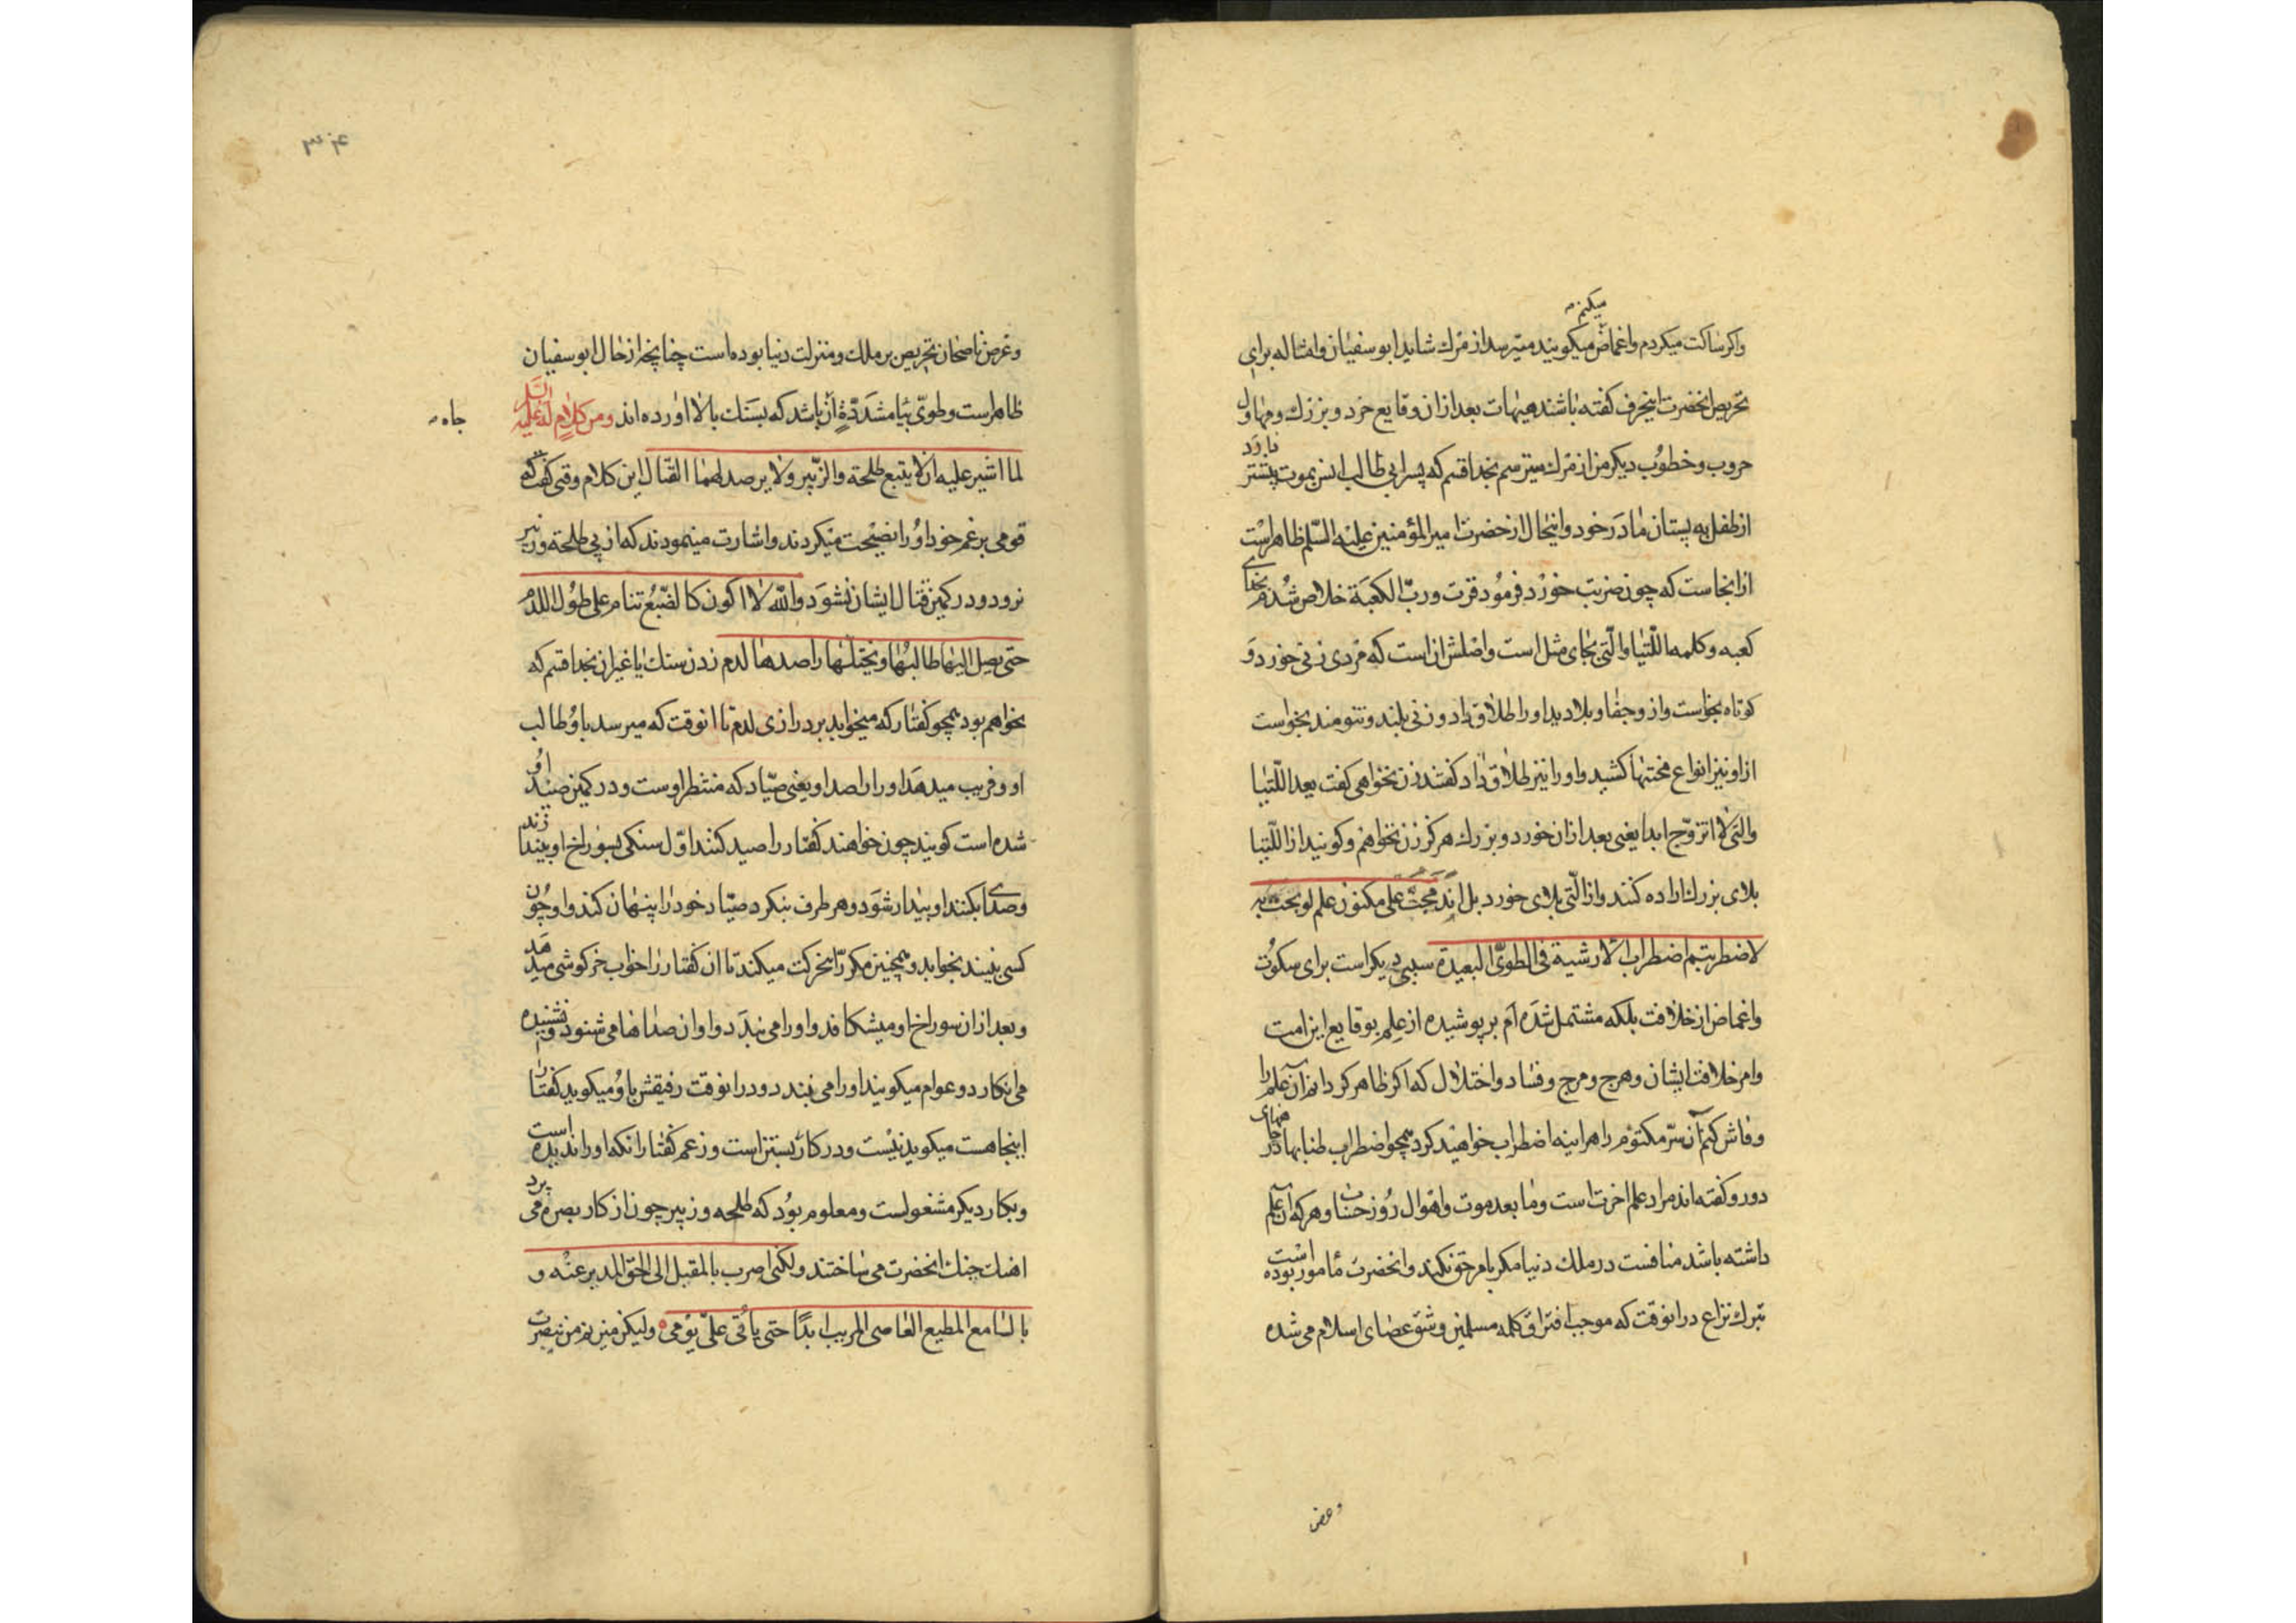 میکنم
واکر ساکت میکردم واغماض میکویند میترسد از مرك شاید ابو سفیان وامثاله برای
تحریص انحضرت اینحرف کفته باشند هیهات بعد ازان وقایع خرد و بزرك ومهاول
حروب وخطوب دیکر من از مرك میترسم بخدا قسم که پسر ابی طالب انس بموت بیشتر دارد
از طفل به پستان مادر خود واینحال از حضرت امیر المؤمنین علیه السلم ظاهر است
از انجاست که چون ضربت خورد فرمود فزت ورب الکعبة خلاص شدم بخدای
کعبه وکلمه اللتیا والتی بجای مثل است واصلش ان است که مردی زنی خورد و
کوتاه بخواست واز و جفا و بلا دید او را طلاق داد و زنی بلند و تنومند بخواست
از او نیز انواع محنتها کشید واو را نیز طلاق داد کفتند زن نخواهی کفت بعد اللتیا
والتی لا اتزوج ابدا یعنی بعد ازان خورد و بزرك هرکز زن نخواهم وکویند از اللتیا
بلای بزرك اراده کنند واز التی بلای خورد بل اندمجت علی مکنون علم لو بحت به
لاضطربتم اضطراب الارشیة فی الطوی البعیدة سببی دیکر است برای سکوت
واغماض از خلافت بلکه مشتمل شده ام بر پوشیده از علم بوقایع این امت
وامر خلافت ایشان وهرج ومرج وفساد واختلال که اکر ظاهر کردانم آن علم را
وفاش کنم آن سر مکتوم را هراینه اضطراب خواهید کرد همچو اضطراب طنابها در چاههای
دور وکفته اند مراد علم اخرت است وما بعد موت واهوال روز حساب وهر که آن علم
داشته باشد منافست در ملك دنیا مکر بامر حق نکند وانحضرت مامور بوده است
بترك نزاع در انوقت که موجب افتراق کلمه مسلمین وشق عصای اسلام می شده
وغرض
۳۰۴
وغرض ناصحان تحریص بر ملك ومنزلت دنیا بوده است چنانچه از حال ابو سفیان
ظاهر است وطوی بیا مشددة آن باشد که بسنك بالا اورده اند ومن کلام له علیه السلم
جاه
لما اشیر علیه ان لا یتبع طلحة والزبیر ولا یرصد لهما القتال این کلام وقتی کفت که
قومی بزعم خود او را نصیحت میکردند واشارت مینمودند که از پی طلحه و زبیر
نرود ودر کمین قتال ایشان نشود والله لا اکون کالضبع تنام علی طول اللدم
حتی یصل الیها طالبها ویختلها راصدها لدم زدن سنك یا غیر ان بخدا قسم که
نخواهم بود همچو کفتار که میخوابد بر درازی لدم تا انوقت که میرسد باو طالب
او وفریب میدهد او را راصد او یعنی صیاد که منتظر اوست ودر کمین صید او
شده است کویند چون خواهند کفتار را صید کنند اول سنکی بسوراخ او بیندازند
وصدا بکنند او بیدار شود وهر طرف بنکرد صیاد خود را پنهان کند واو چون
کسی نبیند بخوابد وهمچنین مکرر اینحرکت میکند تا ان کفتار را خواب خرکوشی میدهد
وبعد ازان سوراخ او میشکافد واو را می بندد واو ان صداها می شنود ونشنیده
می انکارد وعوام میکویند او را می بندد ودر انوقت رفیقش باو میکوید کفتار
اینجا هست میکوید نیست ودر کار بستن است وزعم کفتار انکه او را ندیده است
وبکار دیکر مشغولست ومعلوم بود که طلحه و زبیر چون از کار بصره می پردازند
اهنك جنك انحضرت می ساختند ولکنی اضرب بالمقبل الی الحق المدبر عنه و
بالسامع المطیع العاصی المریب ابدا حتی یاتی علی یومی ولیکن من